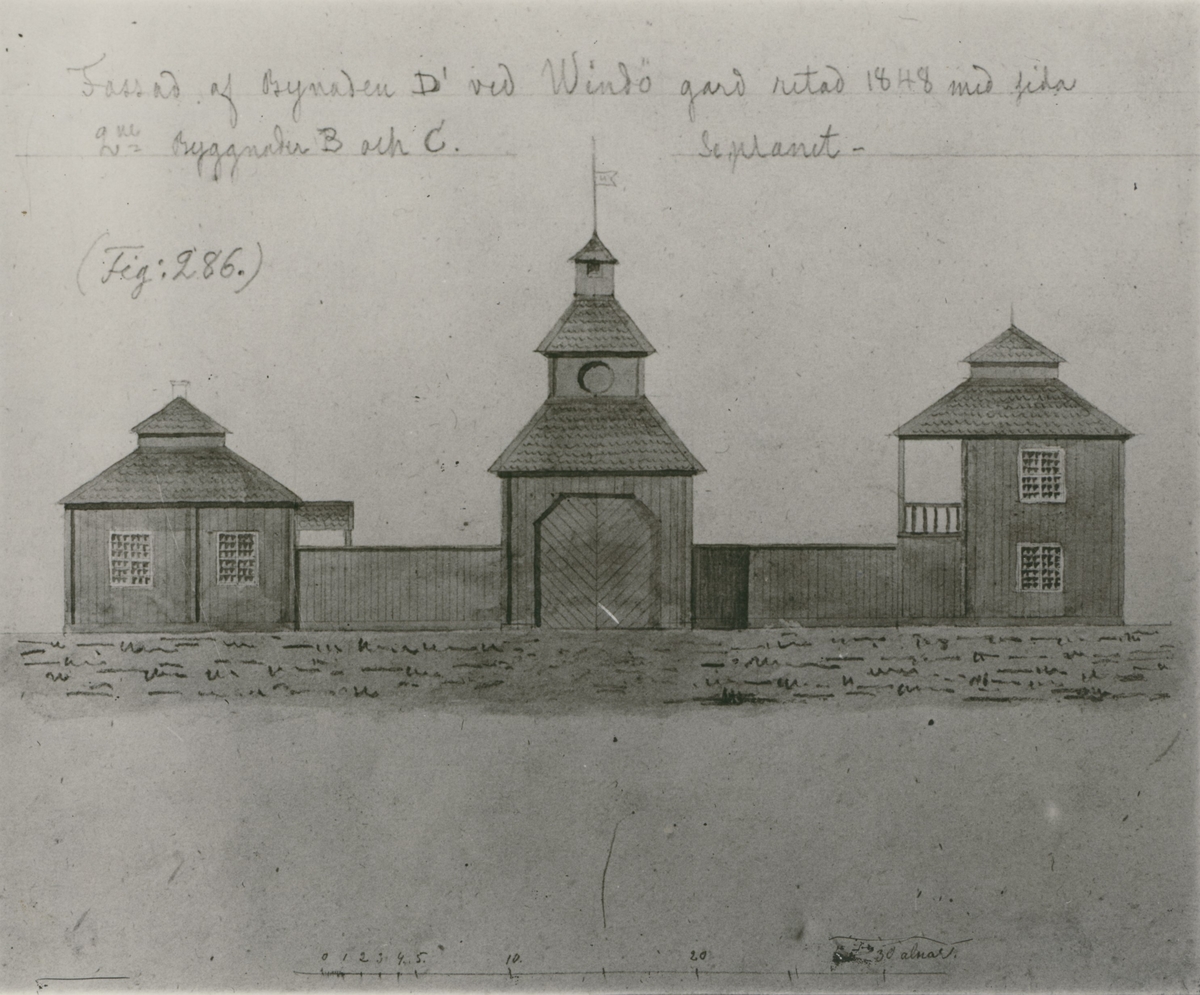 Fassad af Bynaden D' ved Windö gard ritad 1848 med sida
2ne Byggnader B och C. Se planet -
(Fig: 286.)
0 1 2 3 4 5. 10. 20 30 alnar.